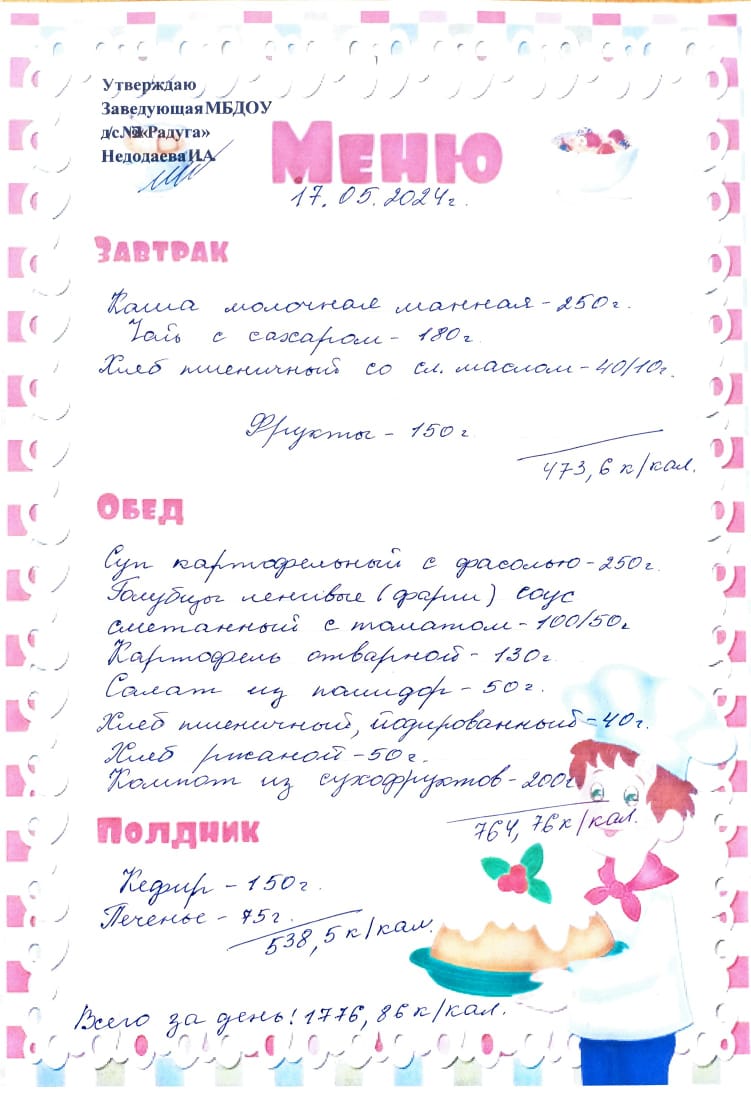 Утверждаю
Заведующая МБДОУ
д/с №2 «Радуга»
Недодаева И.А.
Меню
17.05.2024г.
Завтрак
Каша молочная манная - 250г.
Чай с сахаром - 180г.
Хлеб пшеничный со сл. маслом - 40/10г.
Фрукты - 150г.
473,6 к/кал.
Обед
Суп картофельный с фасолью - 250г.
Голубцы ленивые (фарш) соус
сметанный с томатом - 100/50г
Картофель отварной - 130г.
Салат из помидор - 50г.
Хлеб пшеничный, йодированный - 40г.
Хлеб ржаной - 50г.
Компот из сухофруктов - 200г
764,76 к/кал.
Полдник
Кефир - 150г.
Печенье - 75г.
538,5 к/кал.
Всего за день: 1776,86 к/кал.